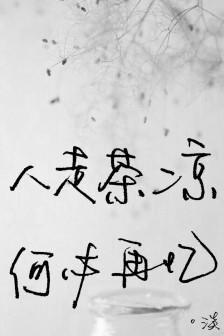 人走茶凉
何必再忆
。淡